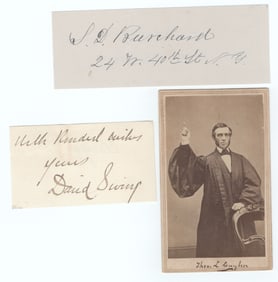 S. D. Burchard
24 W. 40th St N. Y.
With kindest wishes
yours
David Swing
Theo. L. Cuyler